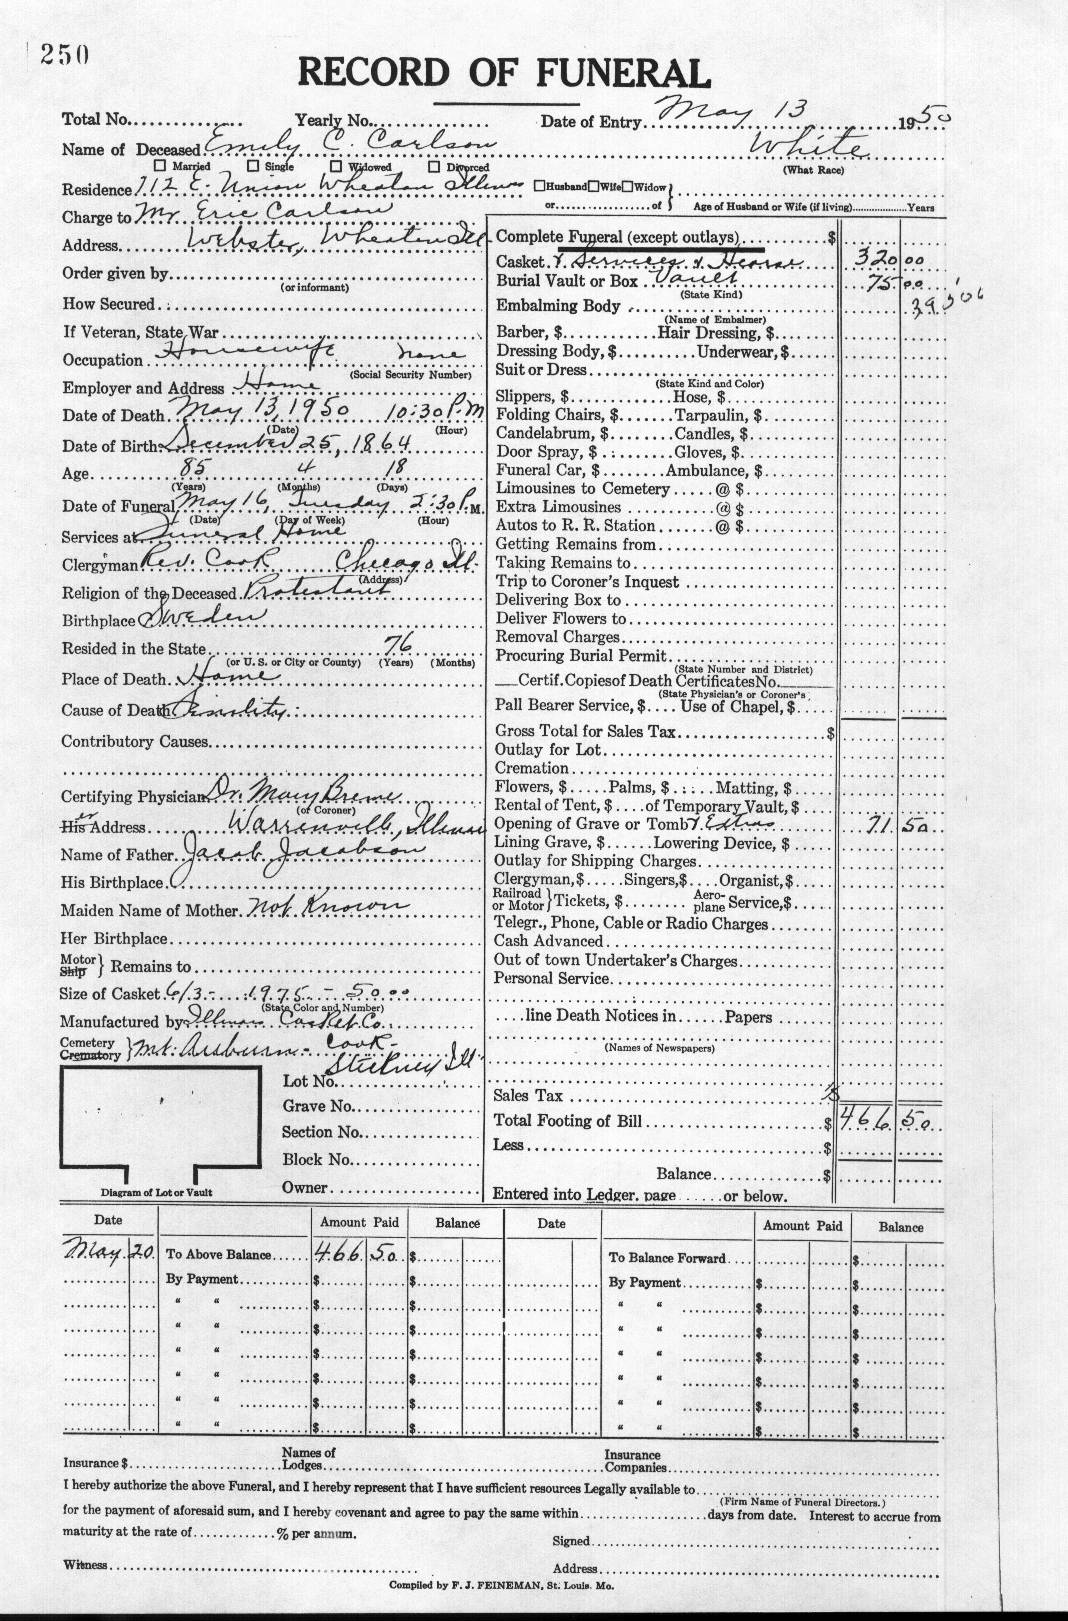 250
RECORD OF FUNERAL
Total No. Yearly No. Date of Entry May 13 1950
Name of Deceased Emily C. Carlson White
Married Single Widowed Divorced (What Race)
Residence 712 E. Union Wheaton Illinois Husband Wife Widow
or of Age of Husband or Wife (if living) Years
Charge to Mr. Eric Carlson
Address Webster, Wheaton Ill
Order given by
(or informant)
How Secured
If Veteran, State War
Occupation Housewife none
(Social Security Number)
Employer and Address Home
Date of Death May 13, 1950 10:30 P.M
(Date) (Hour)
Date of Birth December 25, 1864
Age 85 4 18
(Years) (Months) (Days)
Date of Funeral May 16, Tuesday 2:30 P.M.
(Date) (Day of Week) (Hour)
Services at Funeral Home
Clergyman Rev. Cook Chicago Ill.
(Address)
Religion of the Deceased Protestant
Birthplace Sweden
Resided in the State 76
(or U. S. or City or County) (Years) (Months)
Place of Death Home
Cause of Death Senility
Contributory Causes
Certifying Physician Dr. Mary Breme
(of Coroner)
His er Address Warrenville, Illinois
Name of Father Jacob Jacobson
His Birthplace
Maiden Name of Mother Not Known
Her Birthplace
Motor
Ship } Remains to
Size of Casket 6/3 - 1975 - 50.00
(State Color and Number)
Manufactured by Illinois Casket Co.
Cemetery
Crematory } Mt. Auburn - Cook -
Stickney Ill
Lot No.
Grave No.
Section No.
Block No.
Owner
Diagram of Lot or Vault
Complete Funeral (except outlays) $
Casket & Services & Hearse 320 00
Burial Vault or Box Vault 75 00
(State Kind)
Embalming Body
(Name of Embalmer)
Barber, $ Hair Dressing, $
Dressing Body, $ Underwear, $
Suit or Dress
(State Kind and Color)
Slippers, $ Hose, $
Folding Chairs, $ Tarpaulin, $
Candelabrum, $ Candles, $
Door Spray, $ Gloves, $
Funeral Car, $ Ambulance, $
Limousines to Cemetery @ $
Extra Limousines @ $
Autos to R. R. Station @ $
Getting Remains from
Taking Remains to
Trip to Coroner's Inquest
Delivering Box to
Deliver Flowers to
Removal Charges
Procuring Burial Permit
(State Number and District)
Certif. Copies of Death Certificates No.
(State Physician's or Coroner's
Pall Bearer Service, $ Use of Chapel, $
Gross Total for Sales Tax $
Outlay for Lot
Cremation
Flowers, $ Palms, $ Matting, $
Rental of Tent, $ of Temporary Vault, $
Opening of Grave or Tomb & Extras 71 50
Lining Grave, $ Lowering Device, $
Outlay for Shipping Charges
Clergyman, $ Singers, $ Organist, $
Railroad
or Motor } Tickets, $ Aero-
plane Service, $
Telegr., Phone, Cable or Radio Charges
Cash Advanced
Out of town Undertaker's Charges
Personal Service
line Death Notices in Papers
(Names of Newspapers)
Sales Tax
Total Footing of Bill $ 466 50
Less $
Balance $
Entered into Ledger, page or below.
Date Amount Paid Balance Date Amount Paid Balance
May 20 To Above Balance 466 50 $ To Balance Forward $
By Payment $ $ By Payment $ $
" " $ $ " " $ $
" " $ $ " " $ $
" " $ $ " " $ $
" " $ $ " " $ $
" " $ $ " " $ $
" " $ $ " " $ $
Insurance $ Names of
Lodges Insurance
Companies
I hereby authorize the above Funeral, and I hereby represent that I have sufficient resources Legally available to
(Firm Name of Funeral Directors.)
for the payment of aforesaid sum, and I hereby covenant and agree to pay the same within days from date. Interest to accrue from
maturity at the rate of % per annum.
Signed
Witness Address
Compiled by F. J. FEINEMAN, St. Louis, Mo.